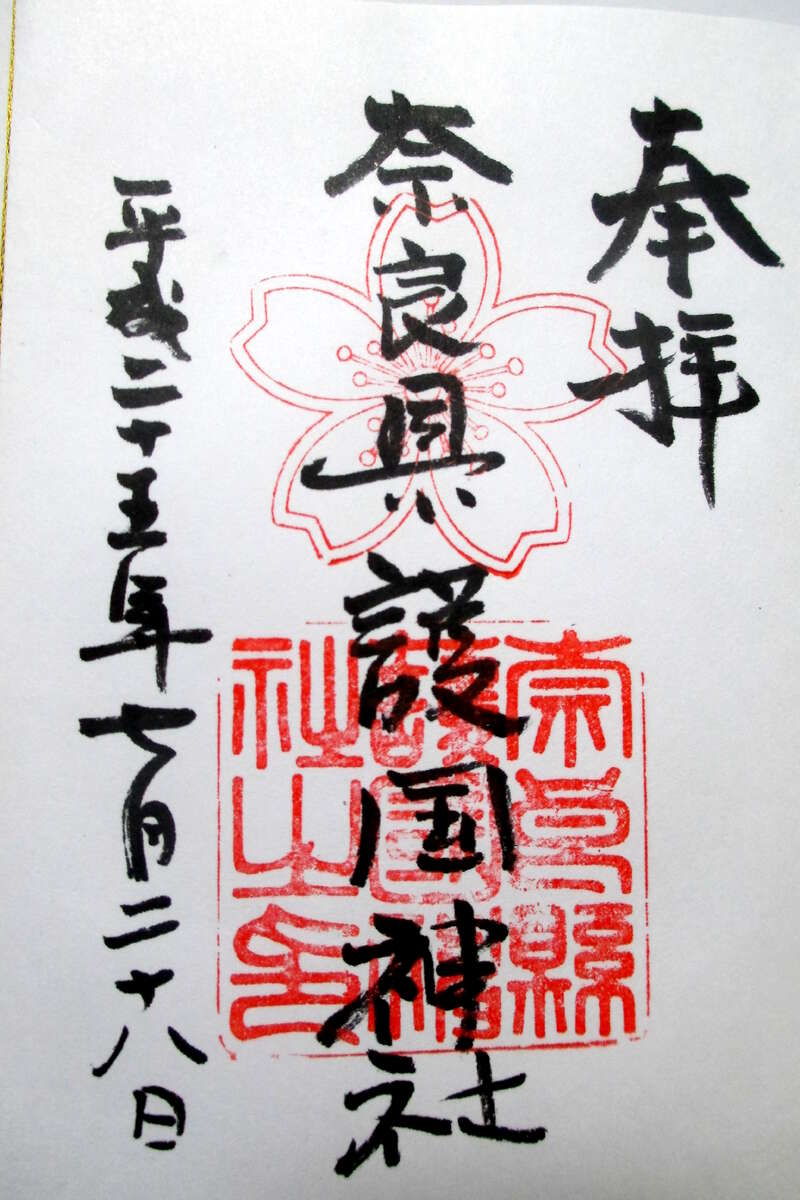 奉拝
奈良県護国神社
平成二十五年七月二十八日
奈良縣
護國神
社之印